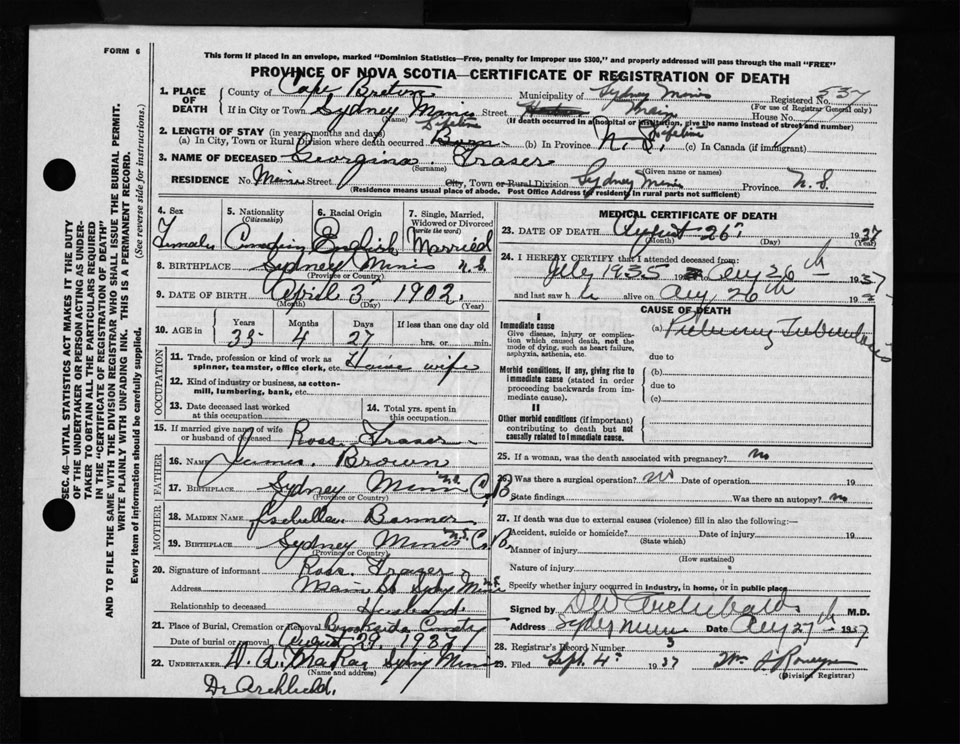 FORM 6
This form if placed in an envelope, marked "Dominion Statistics—Free, penalty for improper use $300," and properly addressed will pass through the mail "FREE"
PROVINCE OF NOVA SCOTIA—CERTIFICATE OF REGISTRATION OF DEATH
SEC. 46—VITAL STATISTICS ACT MAKES IT THE DUTY
OF THE UNDERTAKER OR PERSON ACTING AS UNDER-
TAKER TO OBTAIN ALL THE PARTICULARS REQUIRED
IN THE "CERTIFICATE OF REGISTRATION OF DEATH"
AND TO FILE THE SAME WITH THE DIVISION REGISTRAR WHO SHALL ISSUE THE BURIAL PERMIT.
WRITE PLAINLY WITH UNFADING INK. THIS IS A PERMANENT RECORD.
Every item of information should be carefully supplied. (See reverse side for instructions.)
1. PLACE OF DEATH County of Cape Breton Municipality of Sydney Mines Registered No. 537
(For use of Registrar General only)
If in City or Town Sydney Mines Street Main House No.
(If death occurred in a hospital or institution, give the name instead of street and number)
2. LENGTH OF STAY (in years, months and days)
(a) In City, Town or Rural Division where death occurred Lifetime (b) In Province N.S. Lifetime (c) In Canada (if immigrant)
3. NAME OF DECEASED Georgina Fraser
(Surname) (Given name or names)
RESIDENCE No. Main Street City, Town or Rural Division Sydney Mines Province N.S.
(Residence means usual place of abode. Post Office Address for residents in rural parts not sufficient)
4. Sex Female
5. Nationality (Citizenship) Canadian
6. Racial Origin English
7. Single, Married, Widowed or Divorced (write the word) Married
8. BIRTHPLACE Sydney Mines N.S.
(Province or Country)
9. DATE OF BIRTH April 3 1902
(Month) (Day) (Year)
10. AGE in Years 35 Months 4 Days 27 If less than one day old
hrs. or min.
OCCUPATION
11. Trade, profession or kind of work as spinner, teamster, office clerk, etc. House wife
12. Kind of industry or business, as cotton-mill, lumbering, bank, etc.
13. Date deceased last worked at this occupation
14. Total yrs. spent in this occupation
15. If married give name of wife or husband of deceased Ross Fraser
FATHER
16. NAME James Brown
17. BIRTHPLACE Sydney Mines N.S. C.B.
(Province or Country)
MOTHER
18. MAIDEN NAME Isabella
19. BIRTHPLACE Sydney Mines N.S. C.B.
(Province or Country)
20. Signature of informant Ross Frazer
Address Main St Sydney Mines N.S.
Relationship to deceased Husband
21. Place of Burial, Cremation or Removal Brookside
Date of burial or removal August 29, 1937
22. UNDERTAKER Sydney Mines
(Name and address)
Dr Archibald.
MEDICAL CERTIFICATE OF DEATH
23. DATE OF DEATH August 26th 1937
(Month) (Day) (Year)
24. I HEREBY CERTIFY that I attended deceased from:
July 1935 to Aug 26th 1937
and last saw h alive on Aug 26th 19
CAUSE OF DEATH
I
Immediate cause
Give disease, injury or complication which caused death, not the mode of dying, such as heart failure, asphyxia, asthenia, etc.
(a) Pulmonary Tuberculosis
due to
Morbid conditions, if any, giving rise to immediate cause (stated in order proceeding backwards from immediate cause).
(b)
due to
(c)
II
Other morbid conditions (if important) contributing to death but not causally related to immediate cause.
25. If a woman, was the death associated with pregnancy? No
26. Was there a surgical operation? No Date of operation 19
State findings Was there an autopsy? No
27. If death was due to external causes (violence) fill in also the following:—
Accident, suicide or homicide? Date of injury 19
(State which)
Manner of injury
(How sustained)
Nature of injury
Specify whether injury occurred in industry, in home, or in public place
Signed by D W Archibald M.D.
Address Sydney Mines Date Aug 27th 1937
28. Registrar's Record Number
29. Filed Sept. 4th 1937
(Division Registrar)